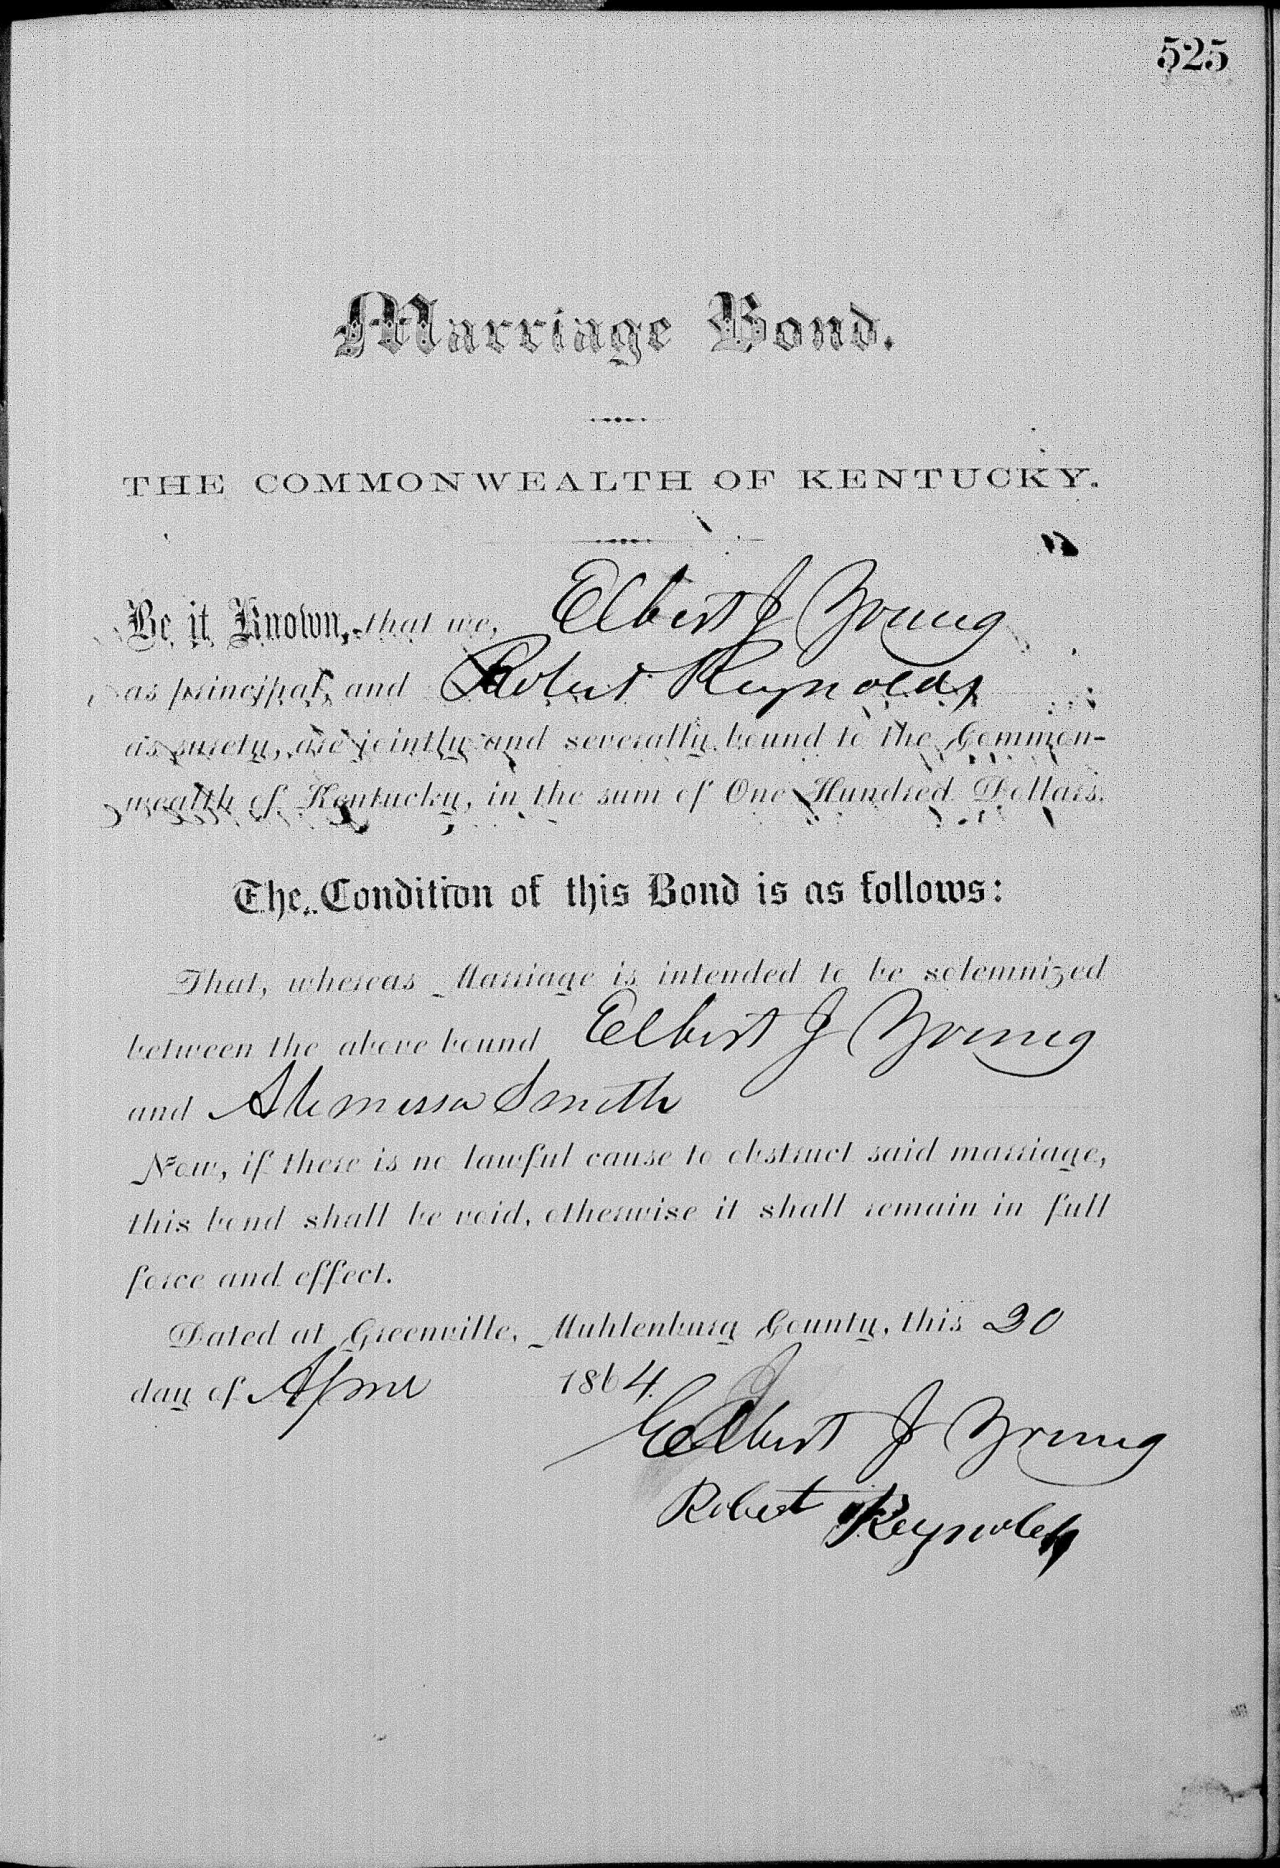 525
Marriage Bond.
THE COMMONWEALTH OF KENTUCKY.
Be it Known, that we, Elbert J Young
as principal, and Robert Reynolds
as surety, are jointly and severally bound to the Common-
wealth of Kentucky, in the sum of One Hundred Dollars.
The Condition of this Bond is as follows:
That, whereas Marriage is intended to be solemnized
between the above bound Elbert J Young
and Smith
Now, if there is no lawful cause to obstruct said marriage,
this bond shall be void, otherwise it shall remain in full
force and effect.
Dated at Greenville, Muhlenburg County, this
day of April 1864.
Elbert J Young
Robert Reynolds